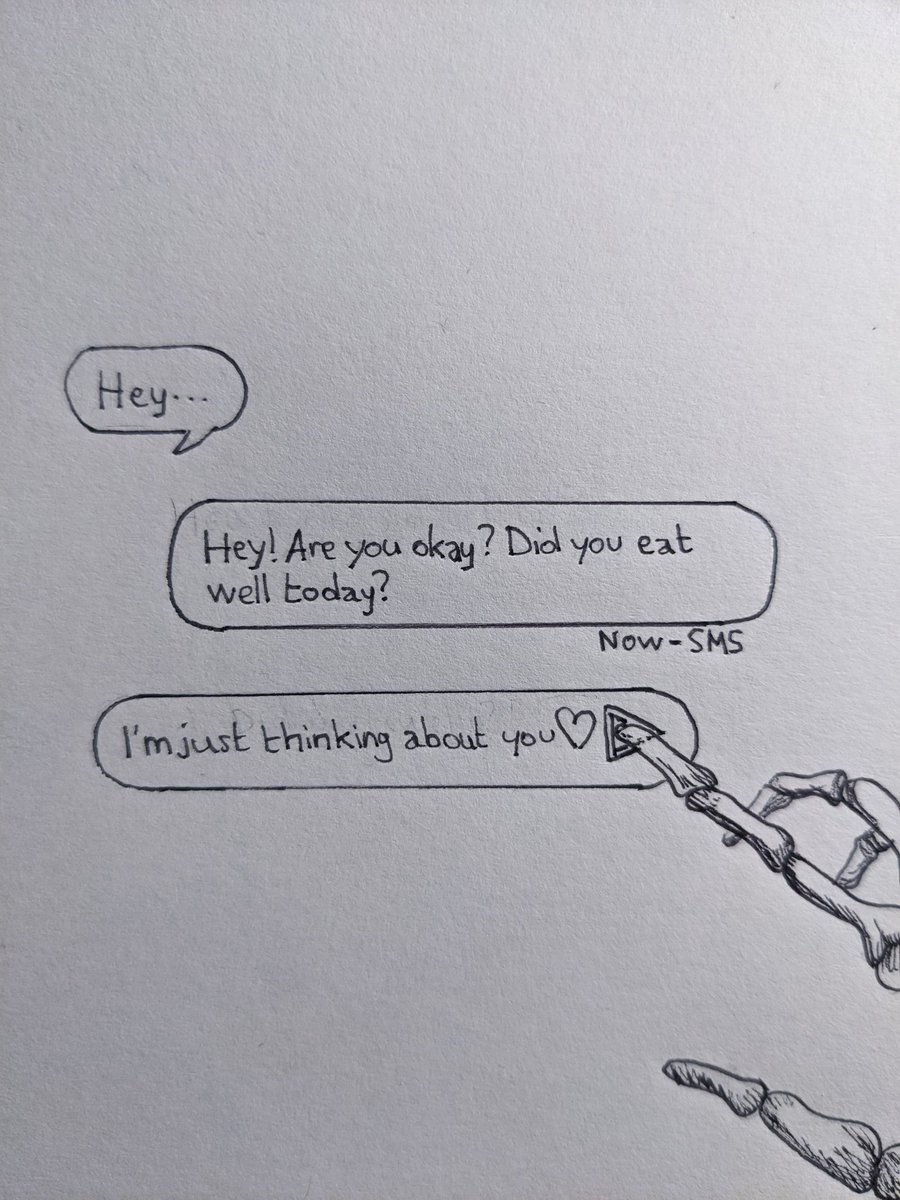 Hey...
Hey! Are you okay? Did you eat
well today?
Now-SMS
I'm just thinking about you♡